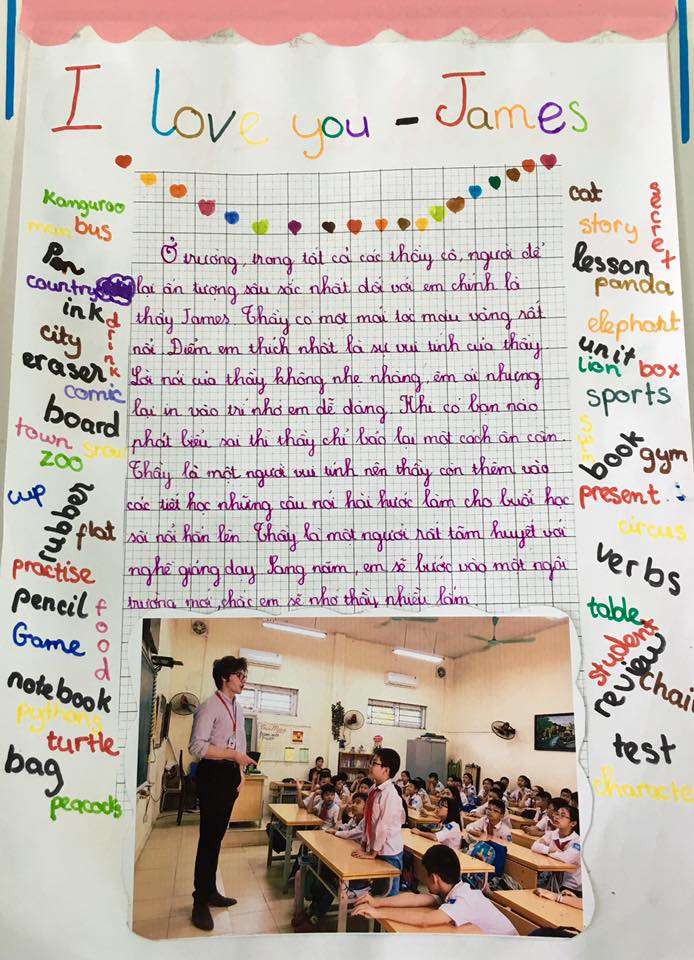 I love you - James
Kangaroo
bus
Pen
country
ink
drink
city
eraser
comic
board
town
snow
zoo
cup
rubber
flat
practise
pencil
food
Game
notebook
pythons
turtle
bag
peacocks
Ở trường, trong tất cả các thầy cô, người để
lại ấn tượng sâu sắc nhất đối với em chính là
thầy James. Thầy có một mái tóc màu vàng rất
nổi. Điểm em thích nhất là sự vui tính của thầy.
Lời nói của thầy không nhẹ nhàng, êm ái nhưng
lại in vào trí nhớ em dễ dàng. Khi có bạn nào
phát biểu sai thì thầy chỉ bảo lại một cách ân cần.
Thầy là một người vui tính nên thầy còn thêm vào
các tiết học những câu nói hài hước làm cho buổi học
sôi nổi hẳn lên. Thầy là một người rất tâm huyết với
nghề giảng dạy. Sang năm, em sẽ bước vào một ngôi
trường mới, chắc em sẽ nhớ thầy nhiều lắm.
cat
secret
story
lesson
panda
elephant
unit
lion
box
sports
book
gym
present
circus
verbs
table
student
review
chair
test
character